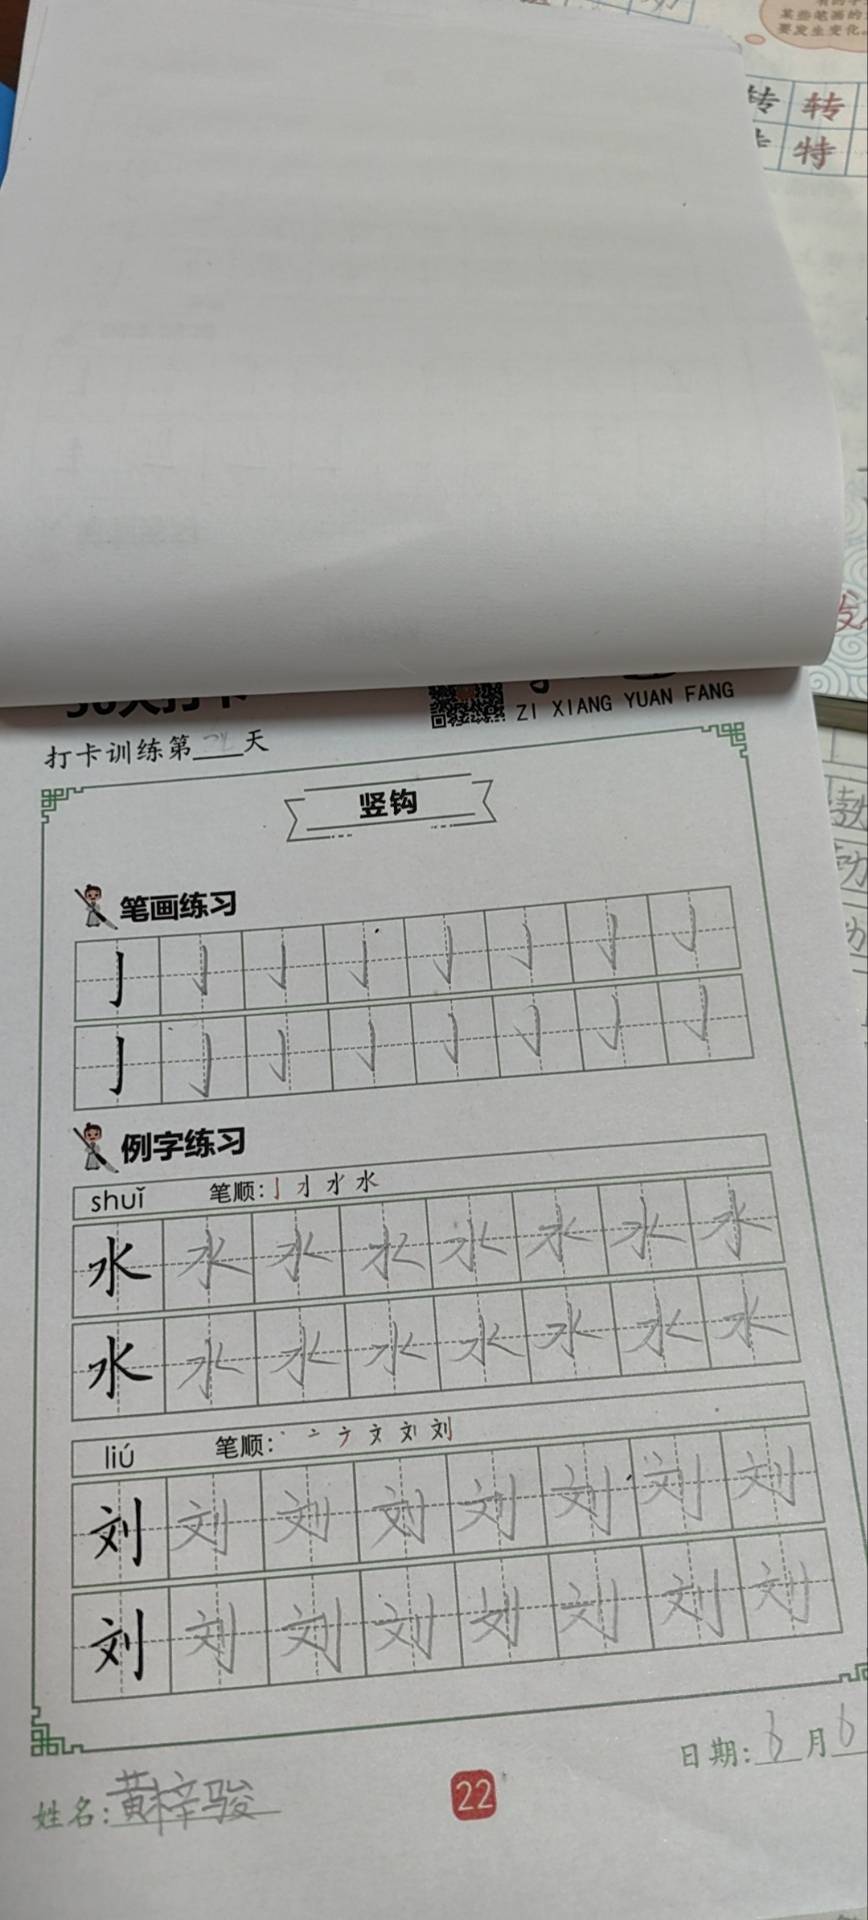 某些笔画的
要发生变化。
转 转
特
30天打卡
ZI XIANG YUAN FANG
打卡训练第 天
竖钩
笔画练习
亅 亅 亅 亅 亅 亅 亅 亅
亅 亅 亅 亅 亅 亅 亅 亅
例字练习
shuǐ 笔顺:亅 水
水 水 水 水 水 水 水 水
水 水 水 水 水 水 水 水
liú 笔顺:丶 亠 文 刘
刘 刘 刘 刘 刘 刘 刘 刘
刘 刘 刘 刘 刘 刘 刘 刘
日期:6月6
姓名:黄梓骏
22